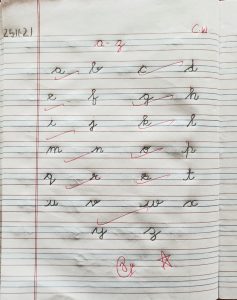 25.11.21 C.W
a-z
a b c d
e f g h
i j k l
m n o p
q r s t
u v w x
y z